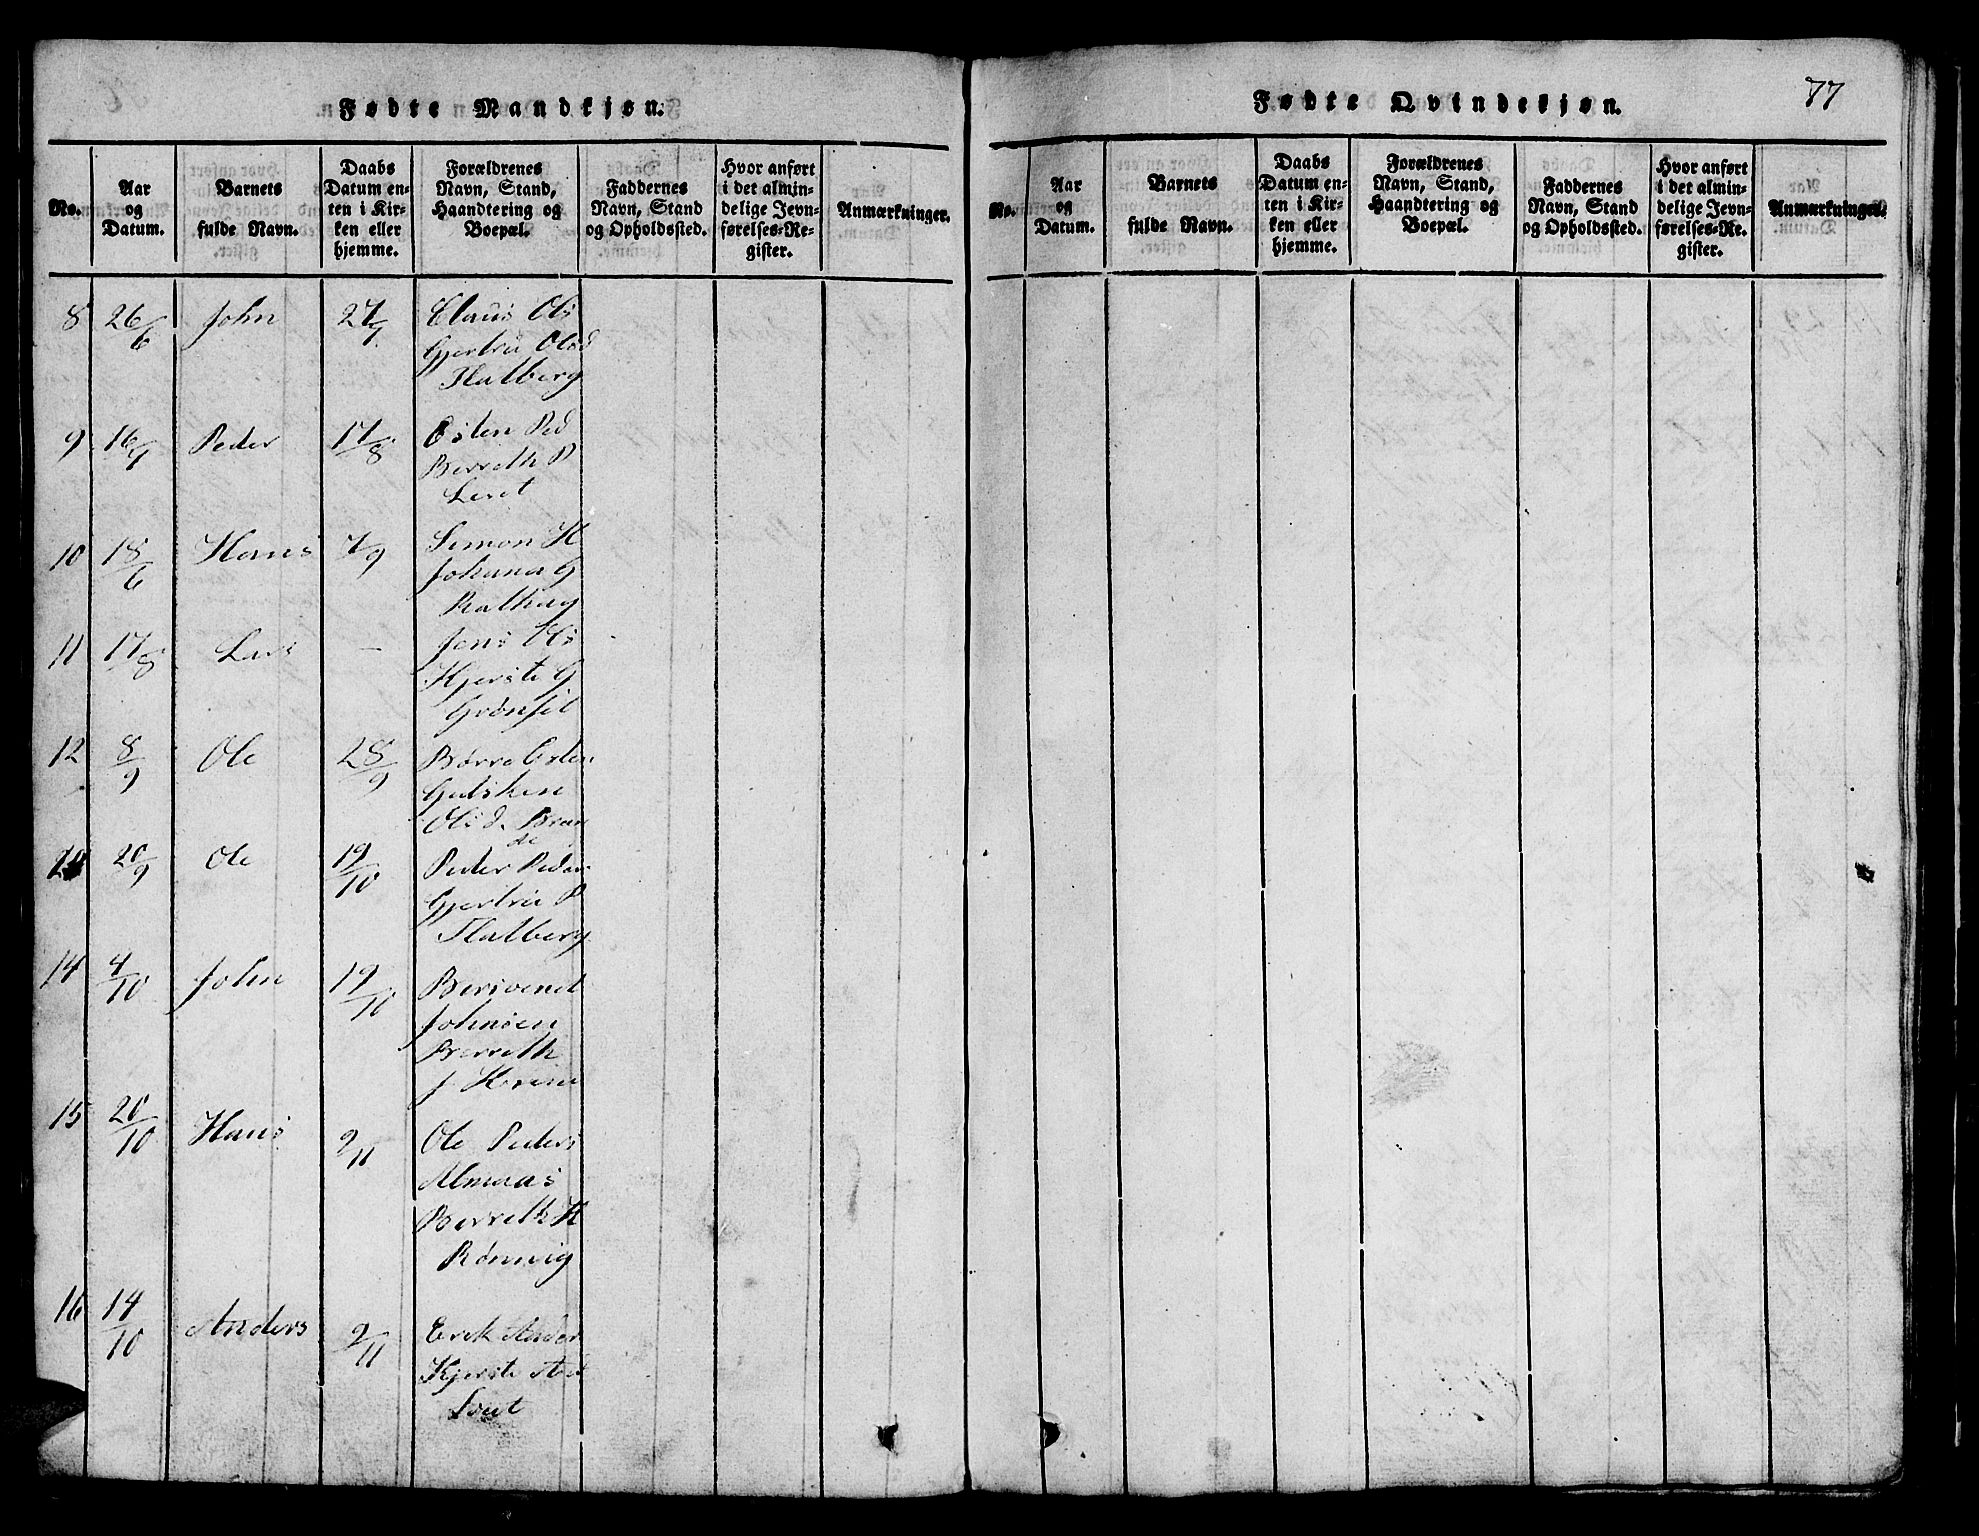 Fødte Mandkjøn.
No.
Aar og Datum.
Barnets fulde Navn.
Daabs Datum enten i Kirken eller hjemme.
Forældrenes Navn, Stand, Haandtering og Boepæl.
Faddernes Navn, Stand og Opholdssted.
Hvor anført i det almindelige Jevnførelses-Register.
Anmærkninger.
8 26/6 John 27/7 Claus Ols
Gjertru Olsd
Flatberg
9 16/7 Peder 17/8 Esten Ped
Berreth P
10 18/6 Hans 7/9 Simon H
Johana G
11 17/8 Lars — Jens Ols
Kjerste G
12 8/9 Ole 28/9 Børre Esten
Olsd. Bran
de
20/9 Ole 19/10 Peder Peders
Gjertru P
Flatberg
14 4/10 John 19/10 Bersvend
Johnsen
Berreth
J
15 20/10 Hans 9/11 Ole Peders
Almaas
Berreth H
Rønnvig
16 14/10 Anders 9/11 Erik Ander
Kjerste And
Fødte Qvindekjøn.
77
No.
Aar og Datum.
Barnets fulde Navn.
Daabs Datum enten i Kirken eller hjemme.
Forældrenes Navn, Stand, Haandtering og Boepæl.
Faddernes Navn, Stand og Opholdssted.
Hvor anført i det almindelige Jevnførelses-Register.
Anmærkninger.